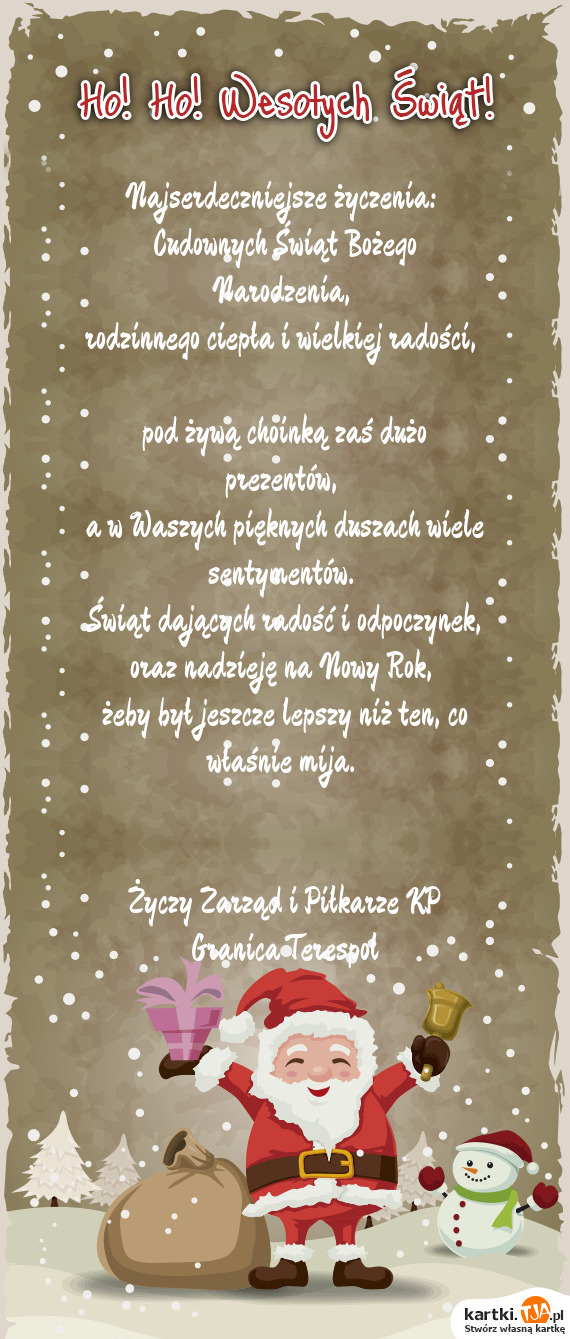 Ho! Ho! Wesołych Świąt!
Najserdeczniejsze życzenia:
Cudownych Świąt Bożego
Narodzenia,
rodzinnego ciepła i wielkiej radości,
pod żywą choinką zaś dużo
prezentów,
a w Waszych pięknych duszach wiele
sentymentów.
Świąt dających radość i odpoczynek,
oraz nadzieję na Nowy Rok,
żeby był jeszcze lepszy niż ten, co
właśnie mija.
Życzy Zarząd i Piłkarze KP
Granica Terespol
kartki.TJA.pl
Stwórz własną kartkę